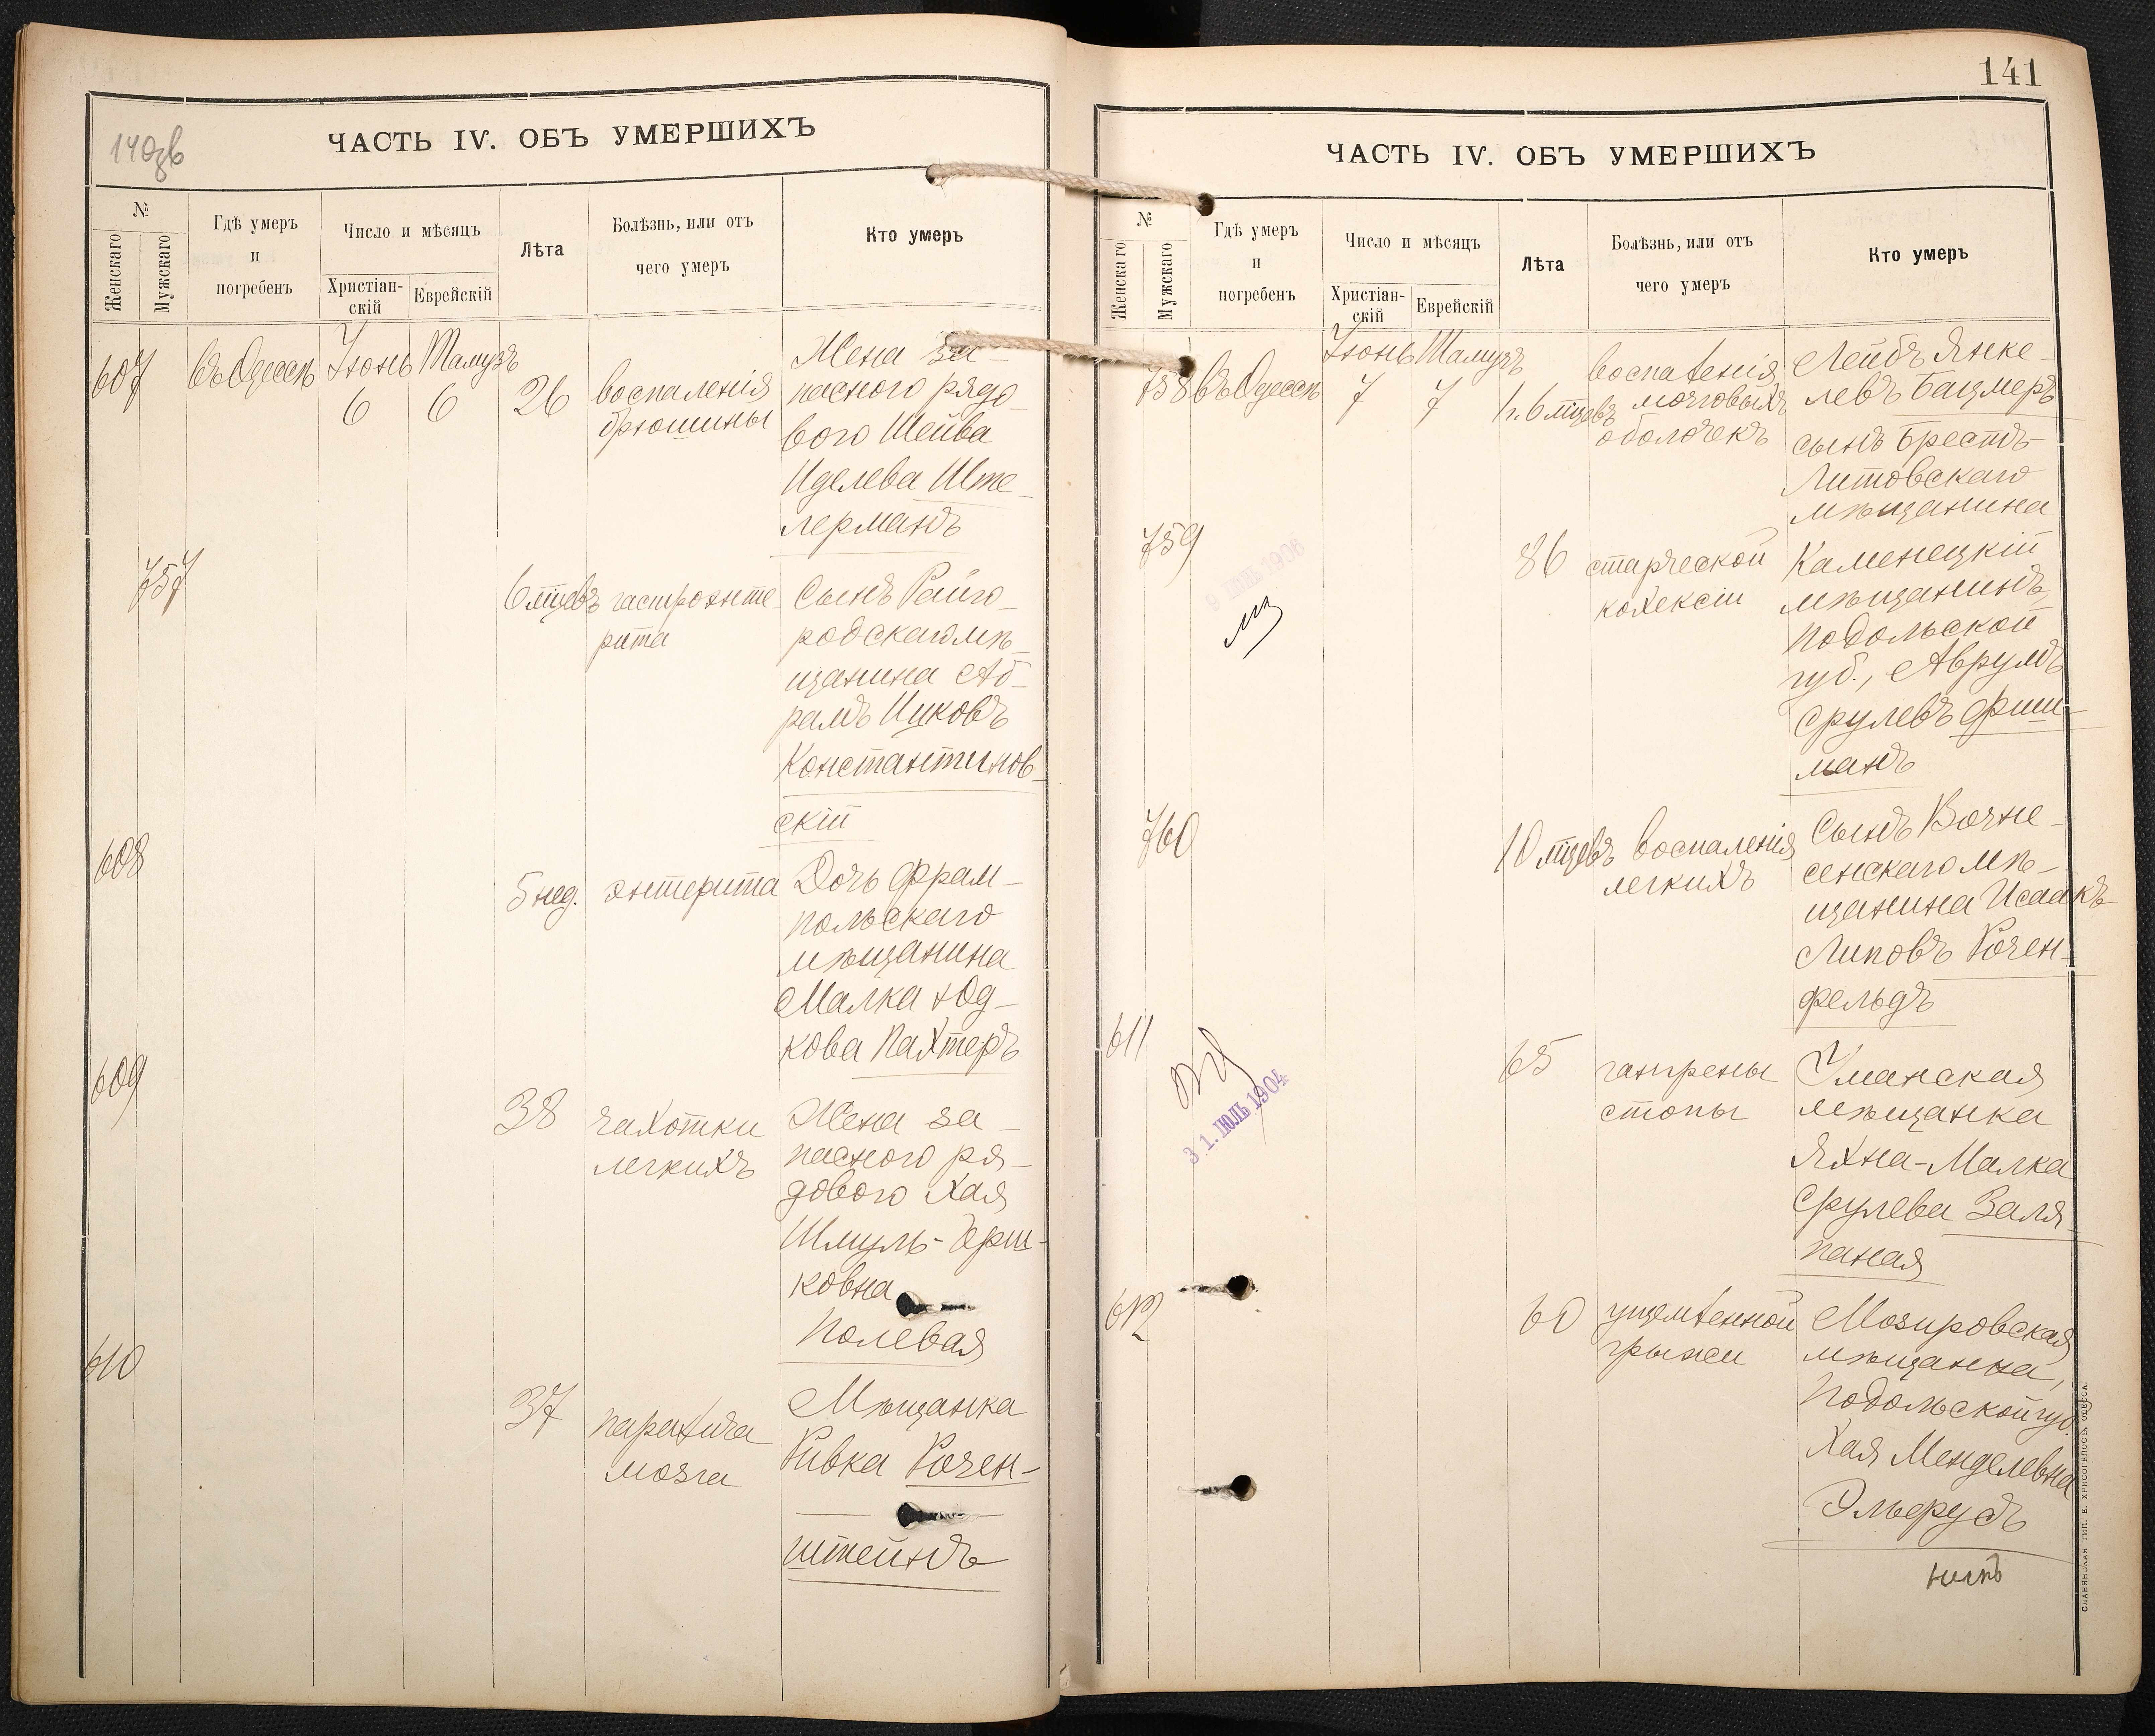 140зв
ЧАСТЬ IV. ОБЪ УМЕРШИХЪ
№
Женскаго
Мужскаго
Гдѣ умеръ
и
погребенъ
Число и мѣсяцъ
Христіан-
скій
Еврейскій
Лѣта
Болѣзнь, или отъ
чего умеръ
Кто умеръ
607
въ Одессѣ
Іюнь
6
Тамузъ
6
26
воспаленія
брюшины
Жена за-
паснаго рядо-
вого Шейва
Иделева Ште-
лерманъ
757
6 мцевъ
гастроэнте-
рита
Сынъ Райго-
родскаго мѣ-
щанина Аб-
рамъ Ицковъ
Константинов-
скій
608
5 нед.
энтерита
Дочь Фрам-
польскаго
мѣщанина
Малка Юд-
кова Пахтеръ
609
38
чахотки
легкихъ
Жена за-
паснаго ря-
дового Хая
Шмуль-Герш-
ковна
Полевая
610
37
паралича
мозга
Мѣщанка
Ривка Розен-
штейнъ
141
ЧАСТЬ IV. ОБЪ УМЕРШИХЪ
№
Женскаго
Мужскаго
Гдѣ умеръ
и
погребенъ
Число и мѣсяцъ
Христіан-
скій
Еврейскій
Лѣта
Болѣзнь, или отъ
чего умеръ
Кто умеръ
758
въ Одессѣ
Іюнь
7
Тамузъ
7
1 г. 6 мцевъ
воспаленія
мозговыхъ
оболочекъ
Лейбъ Янке-
левъ Бацмеръ
сынъ Брестъ-
Литовскаго
мѣщанина
759
9 ІЮНЬ 1906
86
старческой
кахексіи
Каменецкій
мѣщанинъ,
Подольской
губ., Аврумъ
Срулевъ Фиш-
манъ
760
10 мцевъ
воспаленія
легкихъ
Сынъ Возне-
сенскаго мѣ-
щанина Исаакъ
Липовъ Розен-
фельдъ
611
31. ІЮЛЬ 1904
65
гангрены
стопы
Уманская
мѣщанка
Яхна-Малка
Срулева Заля-
паная
612
60
ущемленной
грыжи
Мозировская
мѣщанка,
Подольской губ.
Хая Менделевна
Эльерудъ
СЛАВЯНСКАЯ ТИП. Е. ХРИСОГЕЛОСЪ, ОДЕССА.